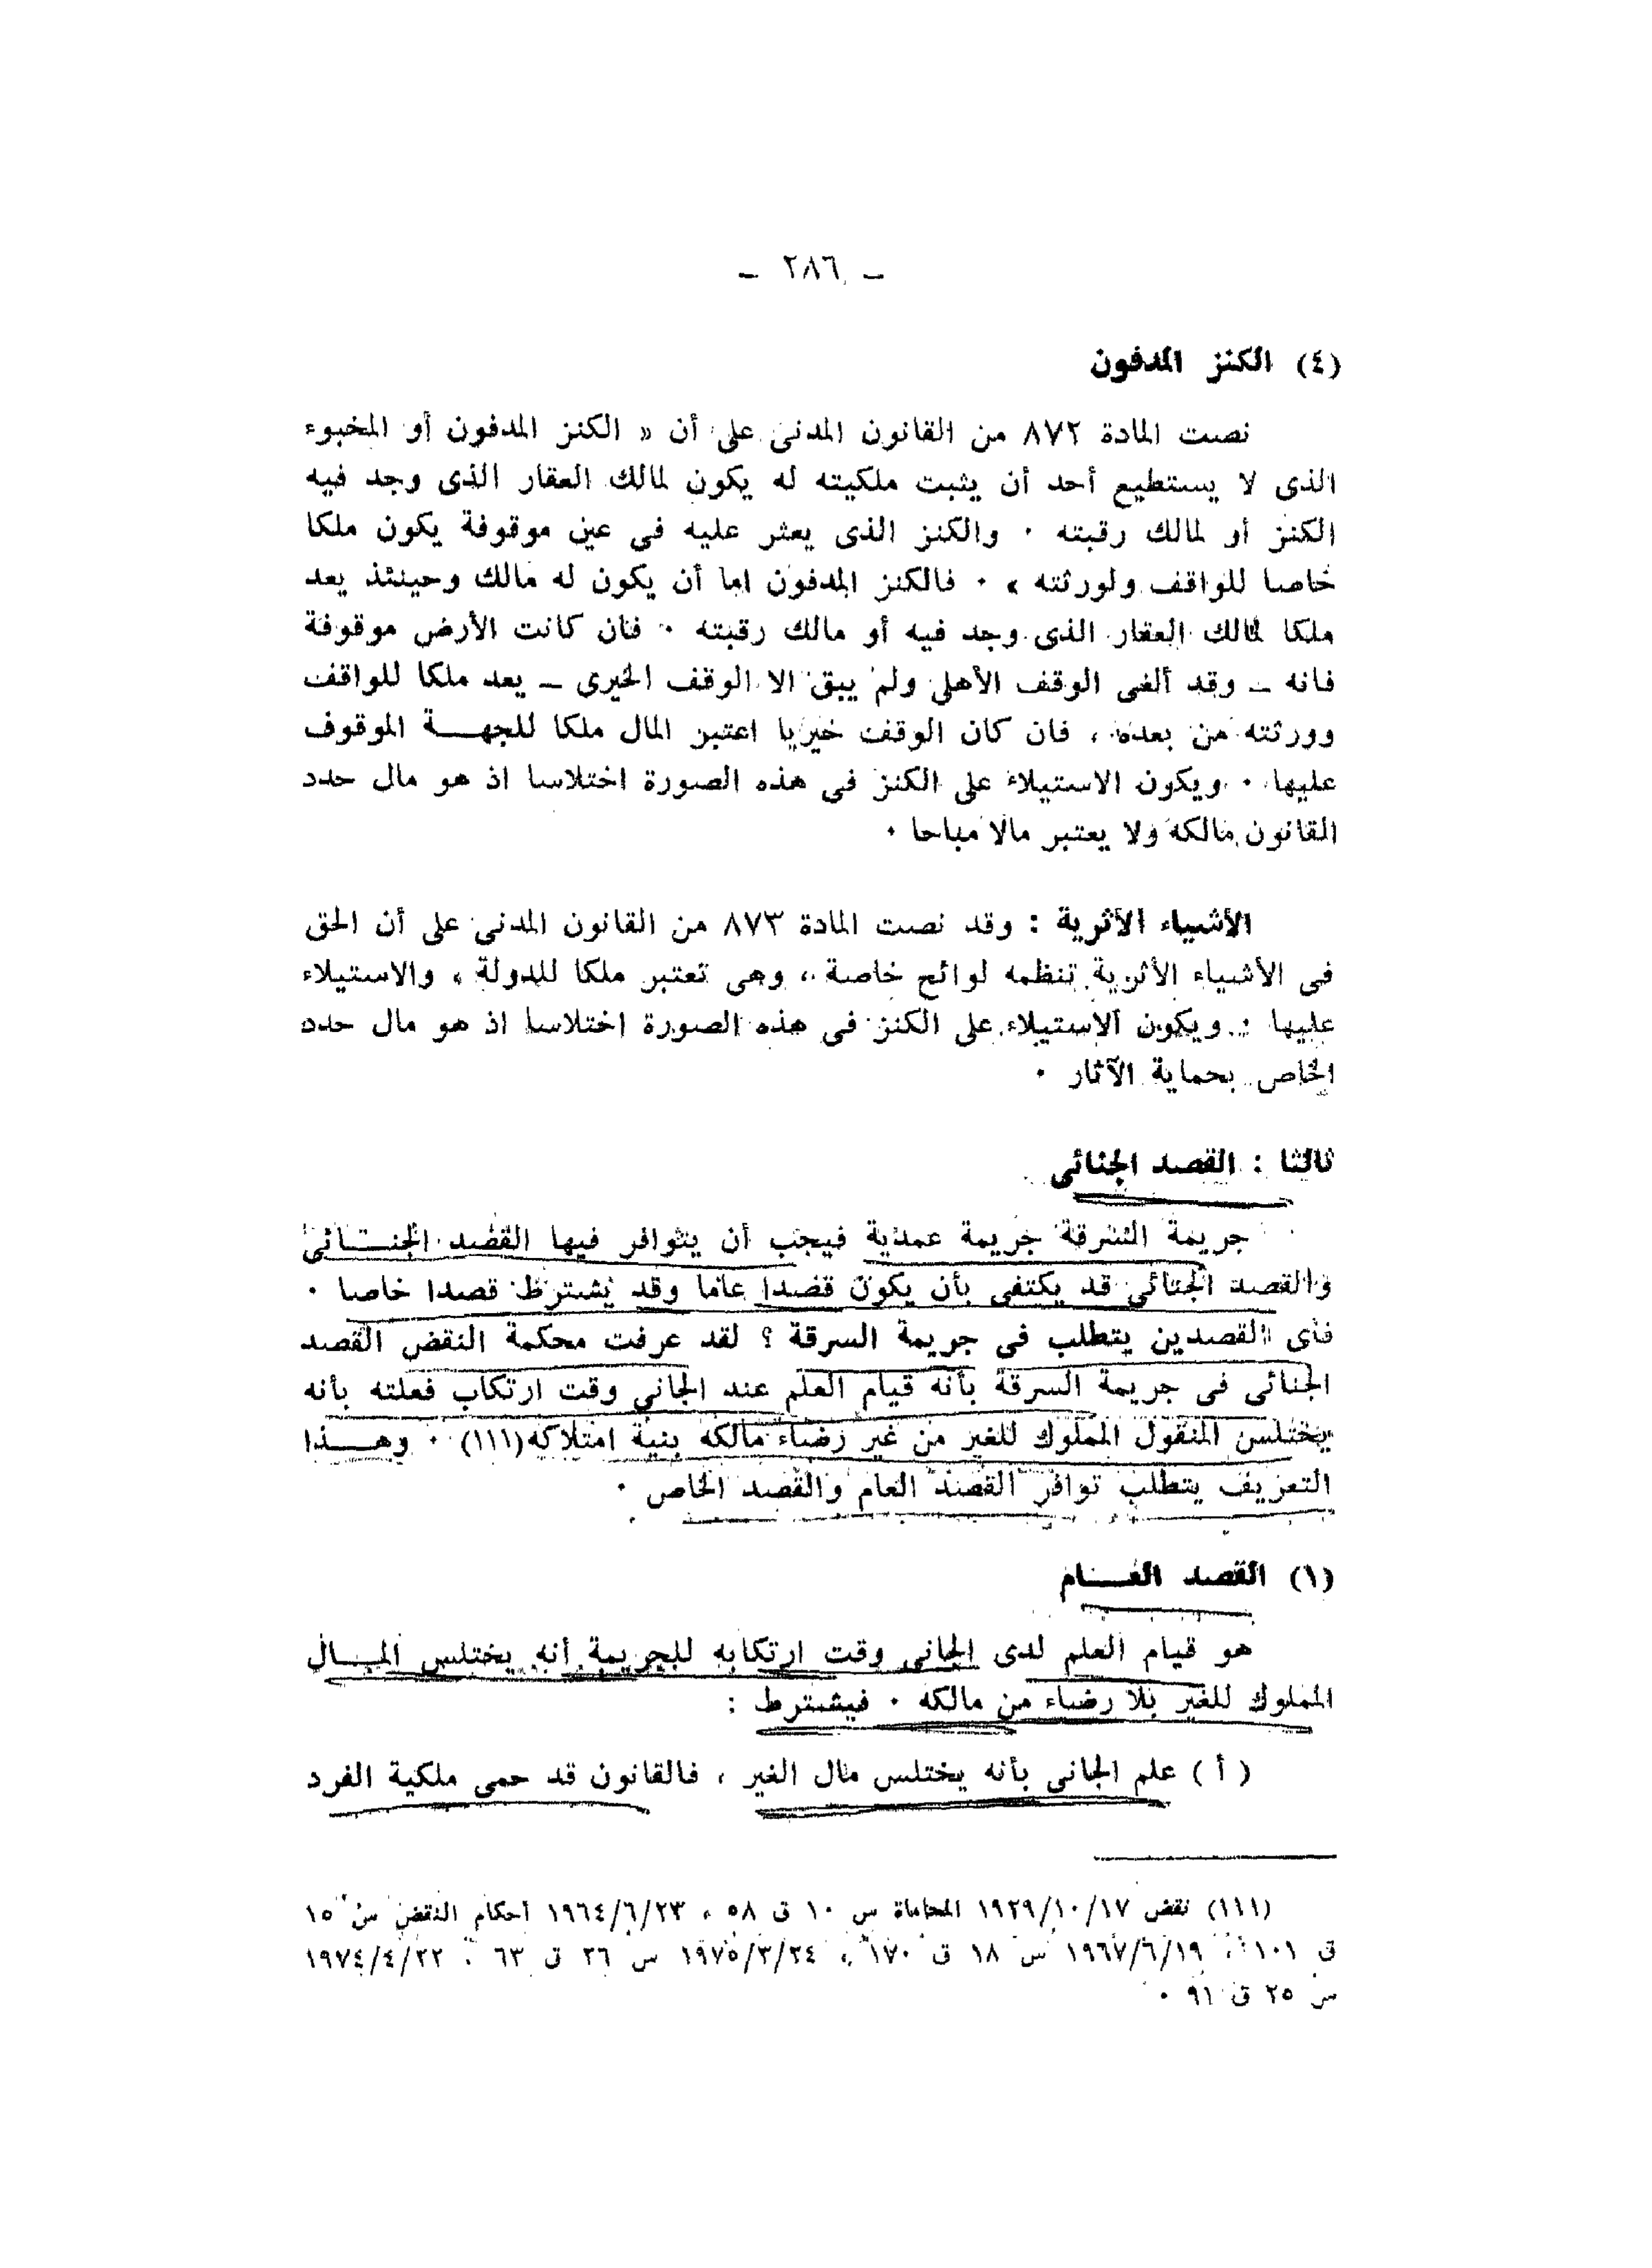 — ٢٨٦ —
(٤) الكنز المدفون
نصت المادة ٨٧٢ من القانون المدنى على أن « الكنز المدفون أو المخبوء
الذى لا يستطيع أحد أن يثبت ملكيته له يكون لمالك العقار الذى وجد فيه
الكنز أو لمالك رقبته ٠ والكنز الذى يعثر عليه فى عين موقوفة يكون ملكا
خاصا للواقف ولورثته » ٠ فالكنز المدفون اما أن يكون له مالك وحينئذ يعد
ملكا لمالك العقار الذى وجد فيه أو مالك رقبته ٠ فان كانت الأرض موقوفة
فانه — وقد ألغى الوقف الأهلى ولم يبق الا الوقف الخيرى — يعد ملكا للواقف
وورثته من بعده ، فان كان الوقف خيريا اعتبر المال ملكا للجهـــة الموقوف
عليها ٠ ويكون الاستيلاء على الكنز فى هذه الصورة اختلاسا اذ هو مال حدد
القانون مالكه ولا يعتبر مالا مباحا ٠
الأشياء الأثرية : وقد نصت المادة ٨٧٣ من القانون المدنى على أن الحق
فى الأشياء الأثرية تنظمه لوائح خاصة ، وهى تعتبر ملكا للدولة ، والاستيلاء
عليها : ويكون الاستيلاء على الكنز فى هذه الصورة اختلاسا اذ هو مال حدد
الخاص بحماية الآثار ٠
ثالثا : القصد الجنائى
جريمة السرقة جريمة عمدية فيجب أن يتوافر فيها القصد الجنـــائى
والقصد الجنائى قد يكتفى بأن يكون قصدا عاما وقد يشترط قصدا خاصا ٠
فأى القصدين يتطلب فى جريمة السرقة ؟ لقد عرفت محكمة النقض القصد
الجنائى فى جريمة السرقة بأنه قيام العلم عند الجانى وقت ارتكاب فعلته بأنه
يختلس المنقول المملوك للغير من غير رضاء مالكه بنية امتلاكه(١١١) ٠ وهـــذا
التعريف يتطلب توافر القصد العام والقصد الخاص ٠
(١) القصد العـــام
هو قيام العلم لدى الجانى وقت ارتكابه للجريمة أنه يختلس المـــال
المملوك للغير بلا رضاء من مالكه ٠ فيشترط :
( أ ) علم الجانى بأنه يختلس مال الغير ، فالقانون قد حمى ملكية الفرد
(١١١) نقض ١٩٢٩/١٠/١٧ المحاماة س ١٠ ق ٥٨ ، ١٩٦٤/٦/٢٣ أحكام النقض س ١٥
ق ١٠١ ، ١٩٦٧/٦/١٩ س ١٨ ق ١٧٠ ، ١٩٧٥/٣/٢٤ س ٢٦ ق ٦٣ ، ١٩٧٤/٤/٢٢
س ٢٥ ق ٩١ ٠